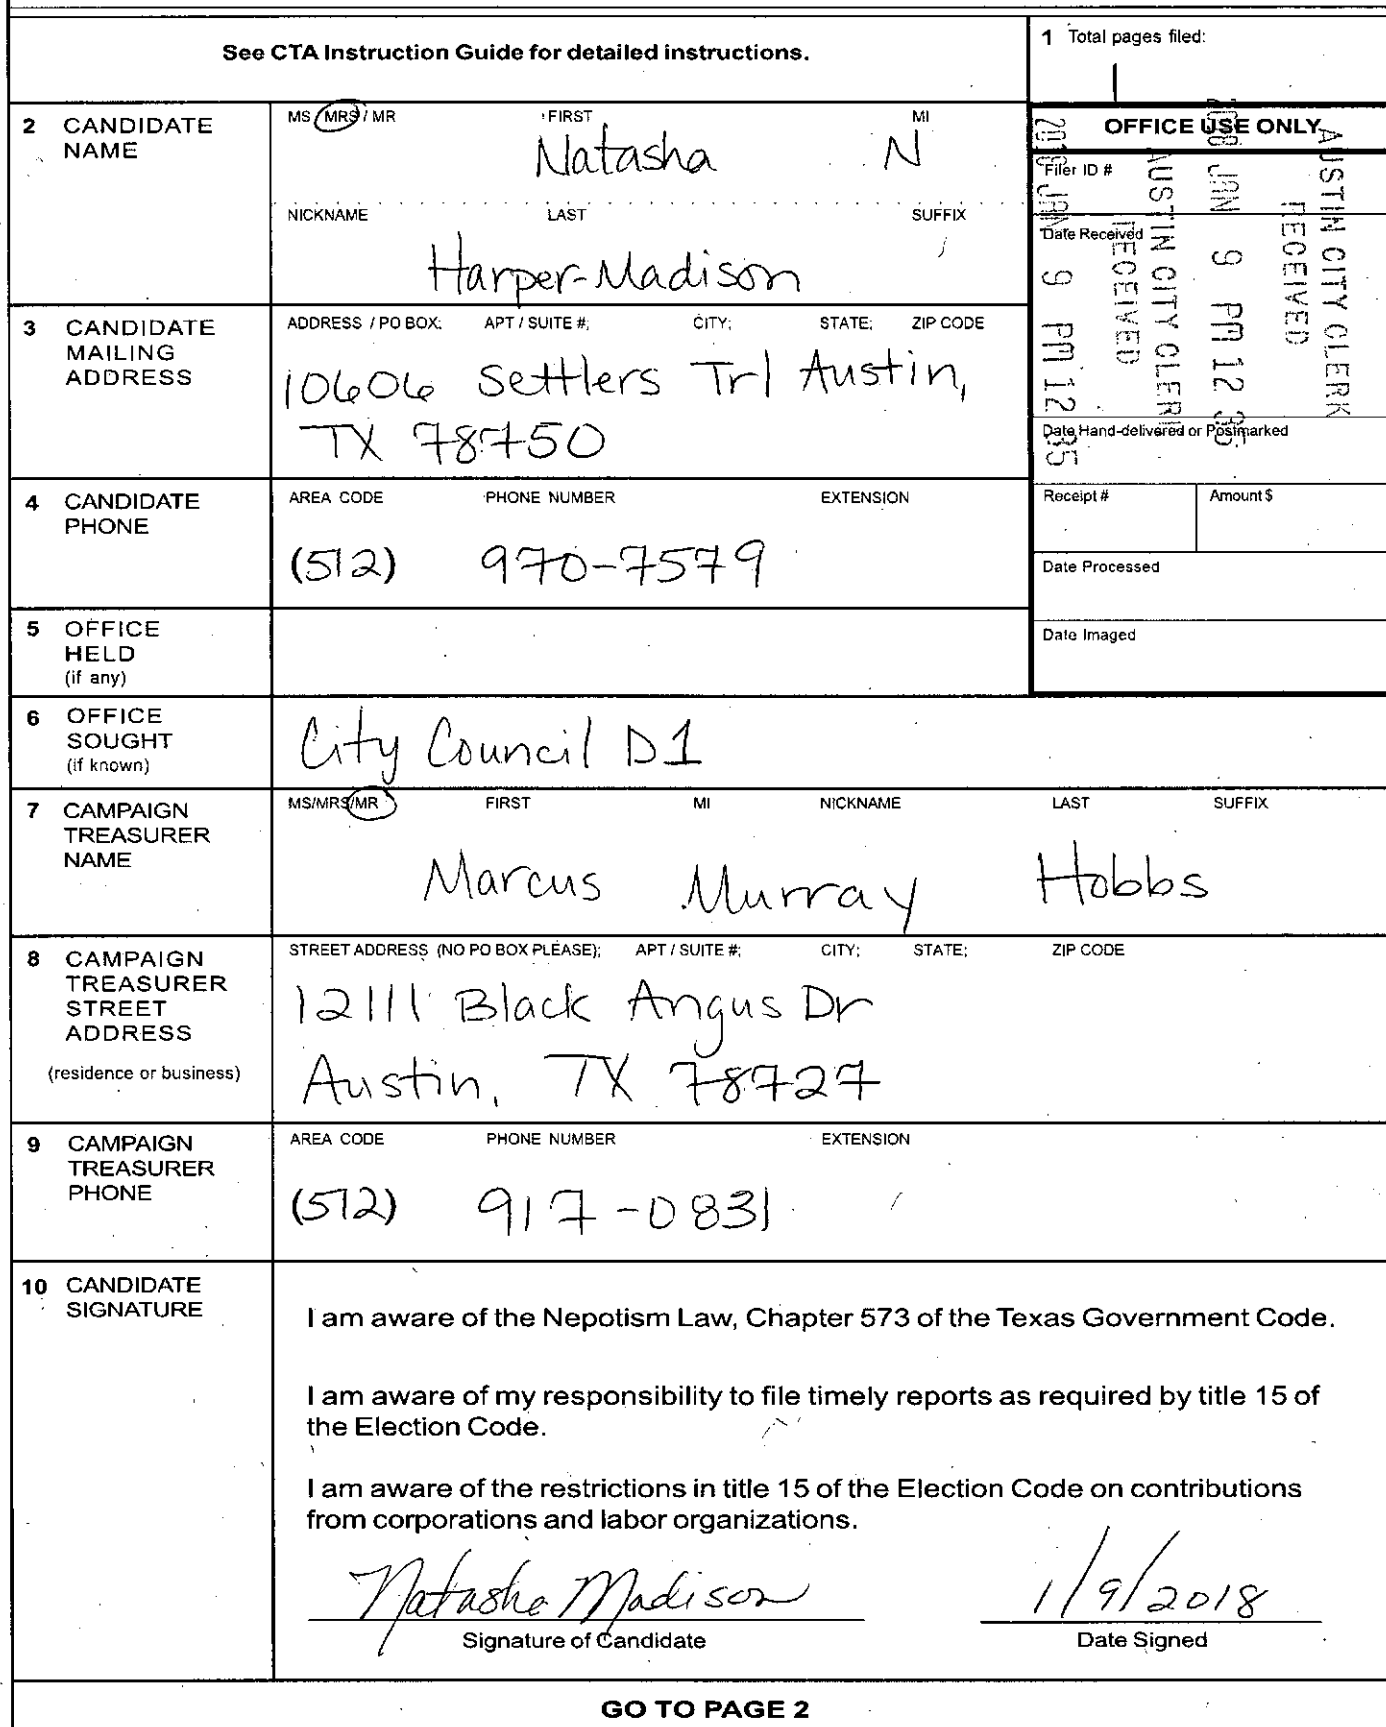 See CTA Instruction Guide for detailed instructions.
1 Total pages filed:
1
2 CANDIDATE NAME
MS / MRS / MR FIRST MI
Natasha N
NICKNAME LAST SUFFIX
Harper-Madison
OFFICE USE ONLY
Filer ID #
Date Received
AUSTIN CITY CLERK
RECEIVED
2018 JAN 9 PM 12 35
AUSTIN CITY CLERK
RECEIVED
2018 JAN 9 PM 12 35
Date Hand-delivered or Postmarked
Receipt # Amount $
Date Processed
Date Imaged
3 CANDIDATE MAILING ADDRESS
ADDRESS / PO BOX; APT / SUITE #; CITY; STATE; ZIP CODE
10606 Settlers Trl Austin,
TX 78750
4 CANDIDATE PHONE
AREA CODE PHONE NUMBER EXTENSION
(512) 970-7579
5 OFFICE HELD
(if any)
6 OFFICE SOUGHT
(if known)
City Council D1
7 CAMPAIGN TREASURER NAME
MS/MRS/MR FIRST MI NICKNAME LAST SUFFIX
Marcus Murray Hobbs
8 CAMPAIGN TREASURER STREET ADDRESS
(residence or business)
STREET ADDRESS (NO PO BOX PLEASE); APT / SUITE #; CITY; STATE; ZIP CODE
12111 Black Angus Dr
Austin, TX 78727
9 CAMPAIGN TREASURER PHONE
AREA CODE PHONE NUMBER EXTENSION
(512) 917-0831
10 CANDIDATE SIGNATURE
I am aware of the Nepotism Law, Chapter 573 of the Texas Government Code.
I am aware of my responsibility to file timely reports as required by title 15 of
the Election Code.
I am aware of the restrictions in title 15 of the Election Code on contributions
from corporations and labor organizations.
Natasha Madison 1/9/2018
Signature of Candidate Date Signed
GO TO PAGE 2